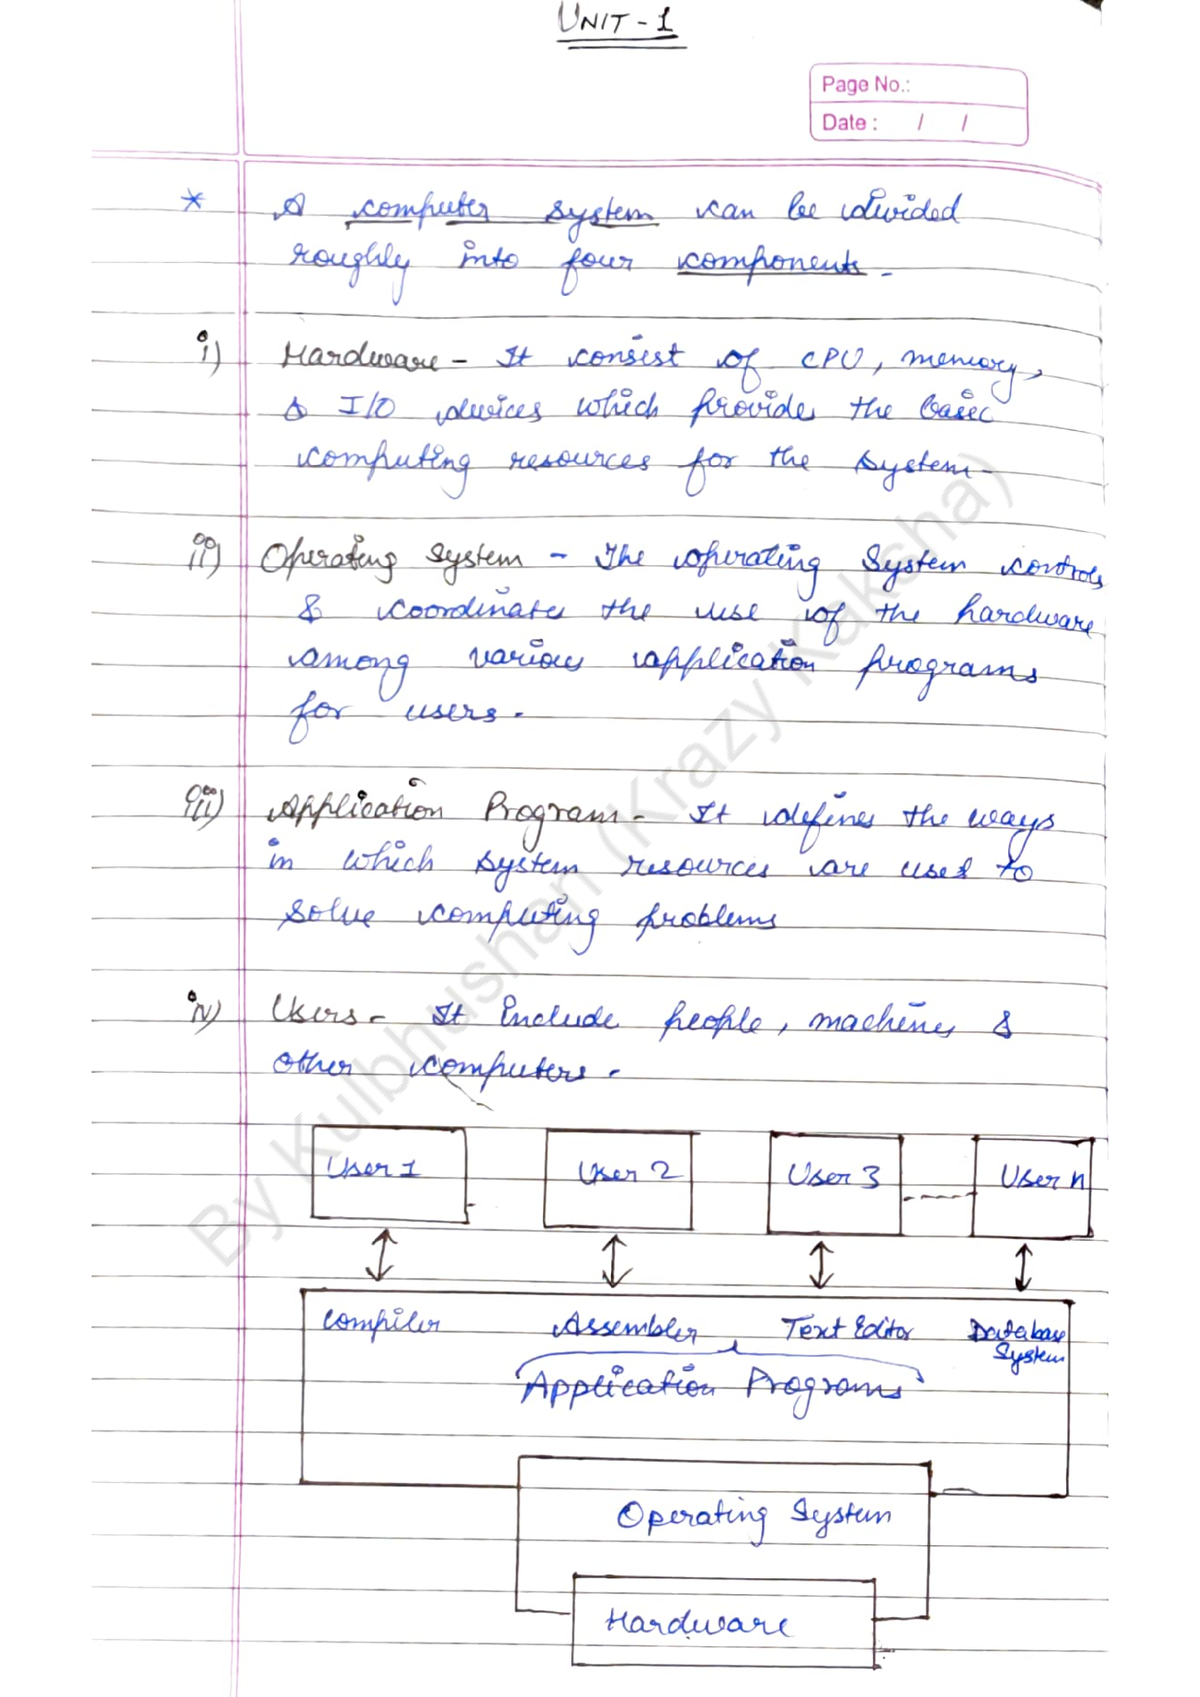 UNIT-1
Page No.:
Date : / /
* A computer system can be divided
roughly into four components.
i) Hardware - It consist of CPU, memory,
& I/O devices which provide the basic
computing resources for the system.
ii) Operating System - The operating System controls
& coordinates the use of the hardware
among various application programs
for users.
iii) Application Program - It defines the ways
in which system resources are used to
solve computing problems
iv) Users - It include people, machines &
other computers.
User 1 User 2 User 3 User n
Compiler Assembler Text Editor Database
System
Application Programs
Operating System
Hardware
By Kulbhushan (Krazy Kaksha)